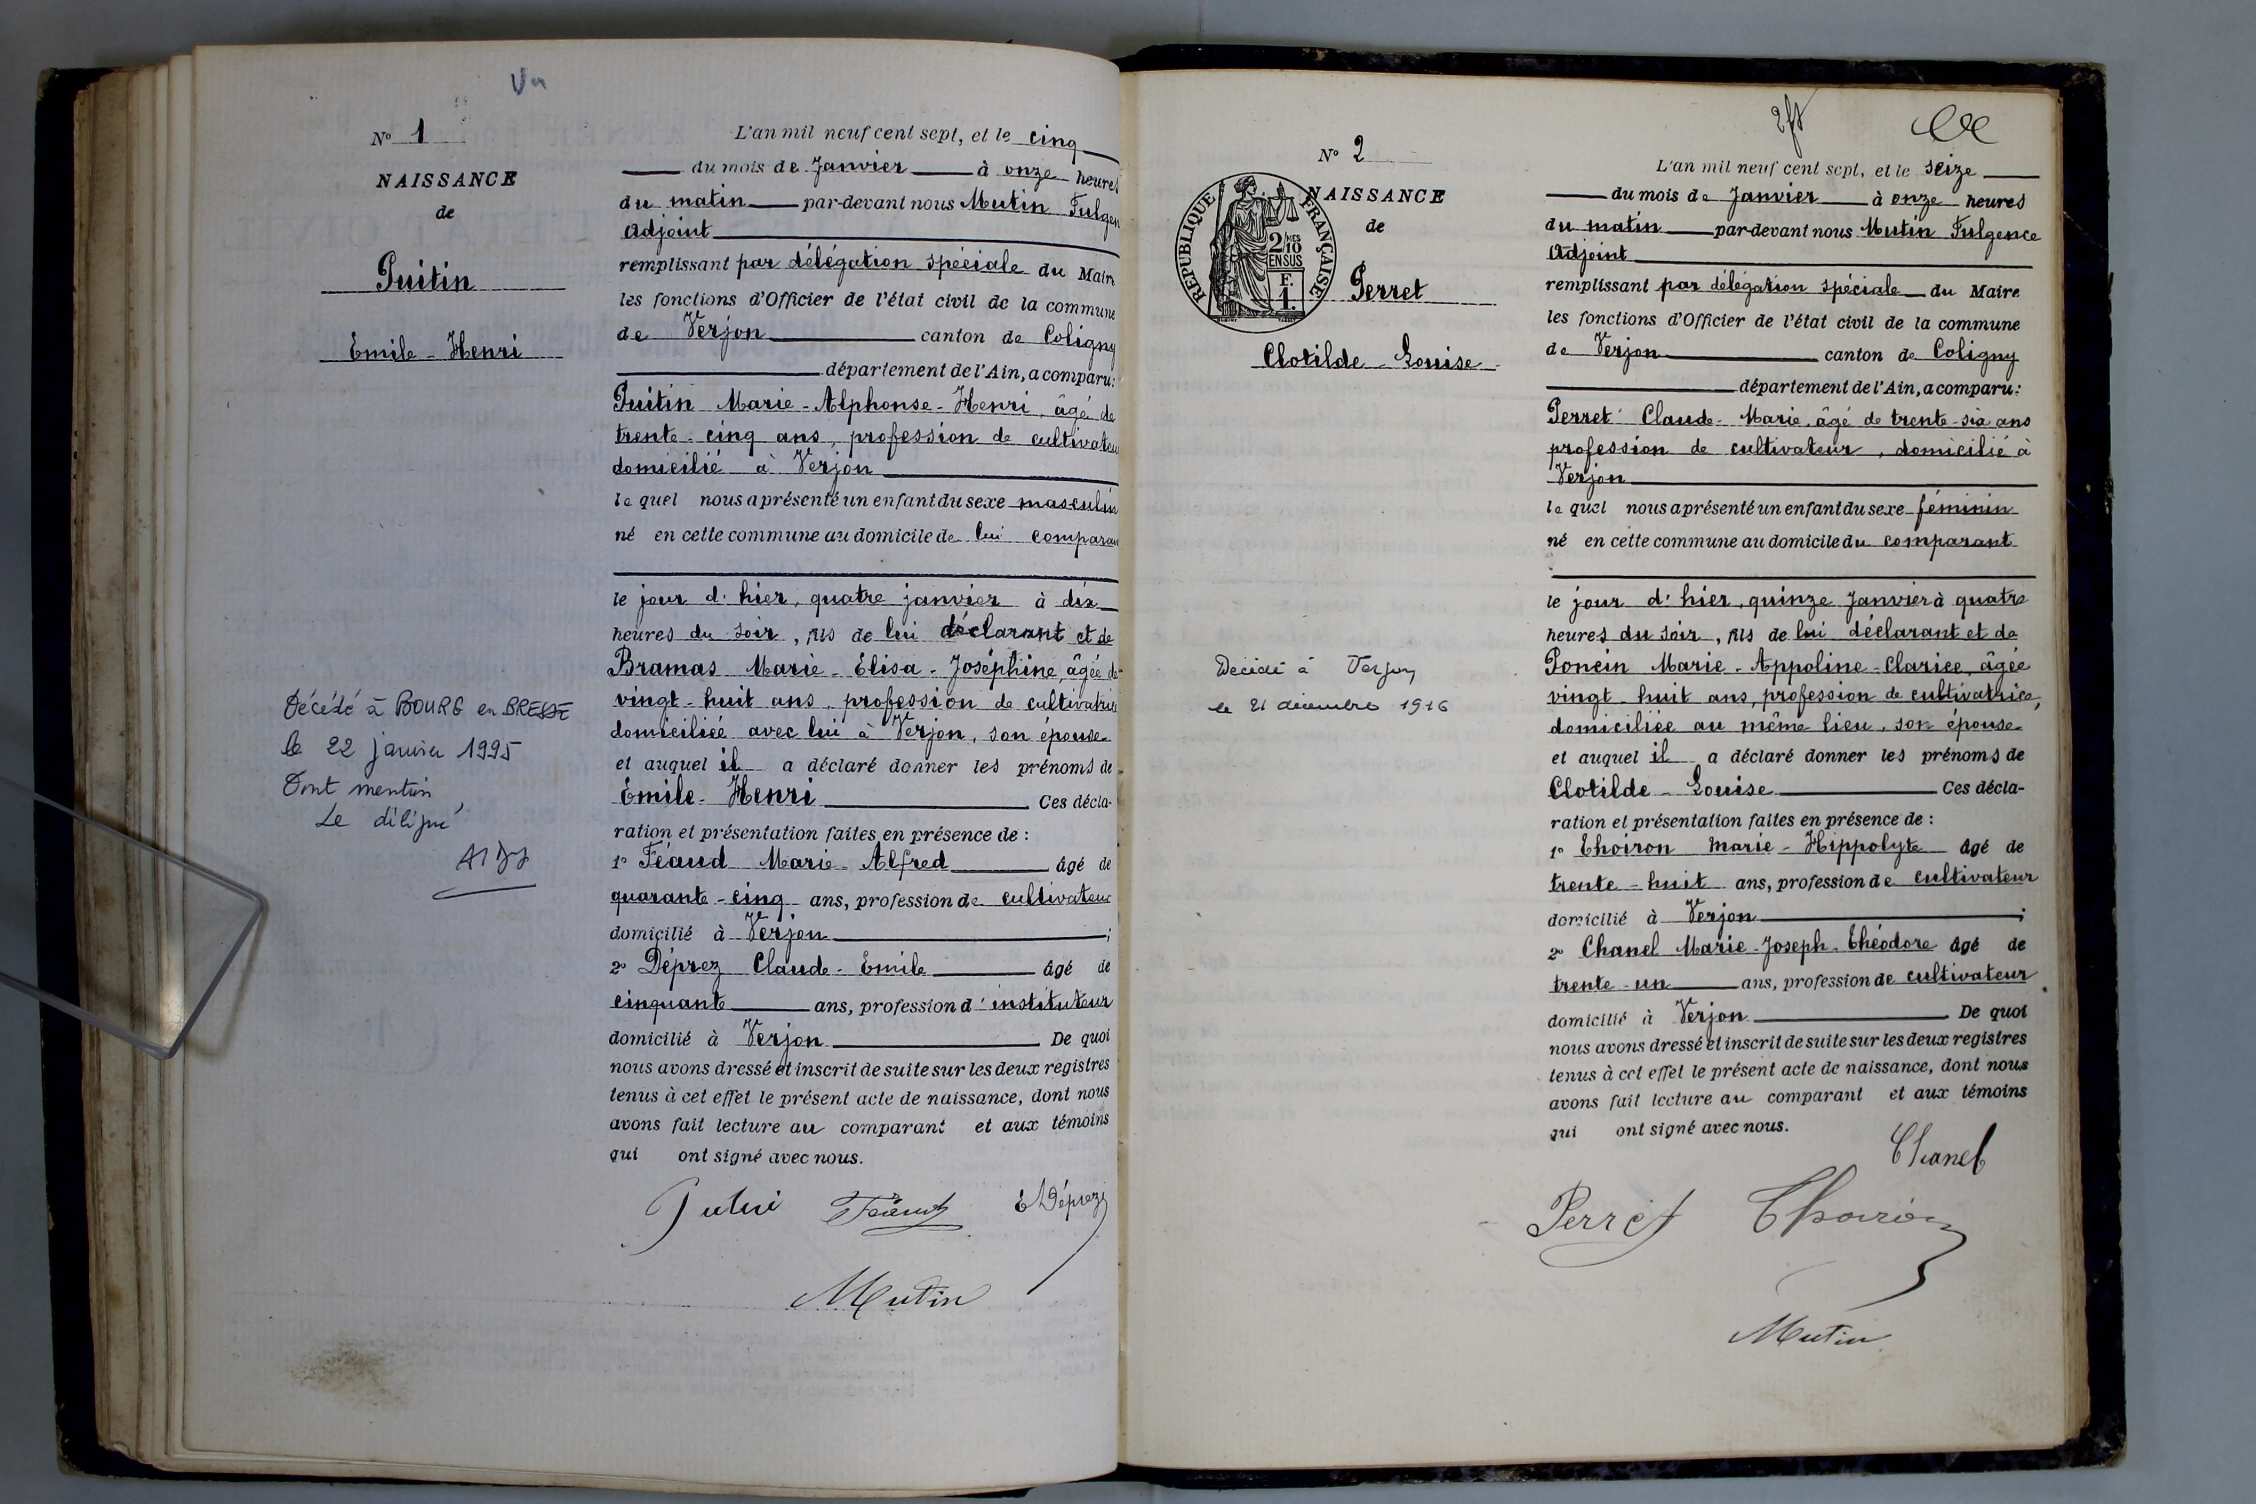 Vu
N° 1
NAISSANCE
de
Puitin
Emile - Henri
Décédé à BOURG en BRESSE
le 22 janvier 1995
Dont mention
Le délégué
L'an mil neuf cent sept, et le cinq
du mois de Janvier à onze heures
du matin par-devant nous Mutin Fulgen
Adjoint
remplissant par délégation spéciale du Maire
les fonctions d'Officier de l'état civil de la commune
de Verjon canton de Coligny
département de l'Ain, a comparu:
Puitin Marie - Alphonse - Henri, âgé de
trente - cinq ans, profession de cultivateur
domicilié à Verjon
lequel nous a présenté un enfant du sexe masculin
né en cette commune au domicile de lui comparant
le jour d'hier, quatre janvier à dix
heures du soir, fils de lui déclarant et de
Bramas Marie - Elisa - Joséphine, âgée de
vingt - huit ans, profession de cultivatrice
domiciliée avec lui à Verjon, son épouse
et auquel il a déclaré donner les prénoms de
Emile - Henri Ces décla-
ration et présentation faites en présence de :
1° Féaud Marie - Alfred âgé de
quarante - cinq ans, profession de cultivateur
domicilié à Verjon ;
2° Déprez Claude - Emile âgé de
cinquante ans, profession d'instituteur
domicilié à Verjon De quoi
nous avons dressé et inscrit de suite sur les deux registres
tenus à cet effet le présent acte de naissance, dont nous
avons fait lecture au comparant et aux témoins
qui ont signé avec nous.
Puitin Féaud E Déprez
Mutin
N° 2
NAISSANCE
de
RÉPUBLIQUE FRANÇAISE
2/10 MES
EN SUS
F.
1.
Perret
Clotilde - Louise
Décédé à Verjon
le 21 décembre 1916
L'an mil neuf cent sept, et le seize
du mois de Janvier à onze heures
du matin par-devant nous Mutin Fulgence
Adjoint
remplissant par délégation spéciale du Maire
les fonctions d'Officier de l'état civil de la commune
de Verjon canton de Coligny
département de l'Ain, a comparu:
Perret Claude - Marie, âgé de trente-six ans
profession de cultivateur, domicilié à
Verjon
lequel nous a présenté un enfant du sexe féminin
né en cette commune au domicile du comparant
le jour d'hier, quinze Janvier à quatre
heures du soir, fils de lui déclarant et de
Poncin Marie - Appoline - Clarice, âgée
vingt - huit ans, profession de cultivatrice,
domiciliée au même lieu, son épouse
et auquel il a déclaré donner les prénoms de
Clotilde - Louise Ces décla-
ration et présentation faites en présence de :
1° Thoiron Marie - Hippolyte âgé de
trente - huit ans, profession de cultivateur
domicilié à Verjon ;
2° Chanel Marie - Joseph - Théodore âgé de
trente - un ans, profession de cultivateur
domicilié à Verjon De quoi
nous avons dressé et inscrit de suite sur les deux registres
tenus à cet effet le présent acte de naissance, dont nous
avons fait lecture au comparant et aux témoins
qui ont signé avec nous.
Chanel
Perret Thoiron
Mutin